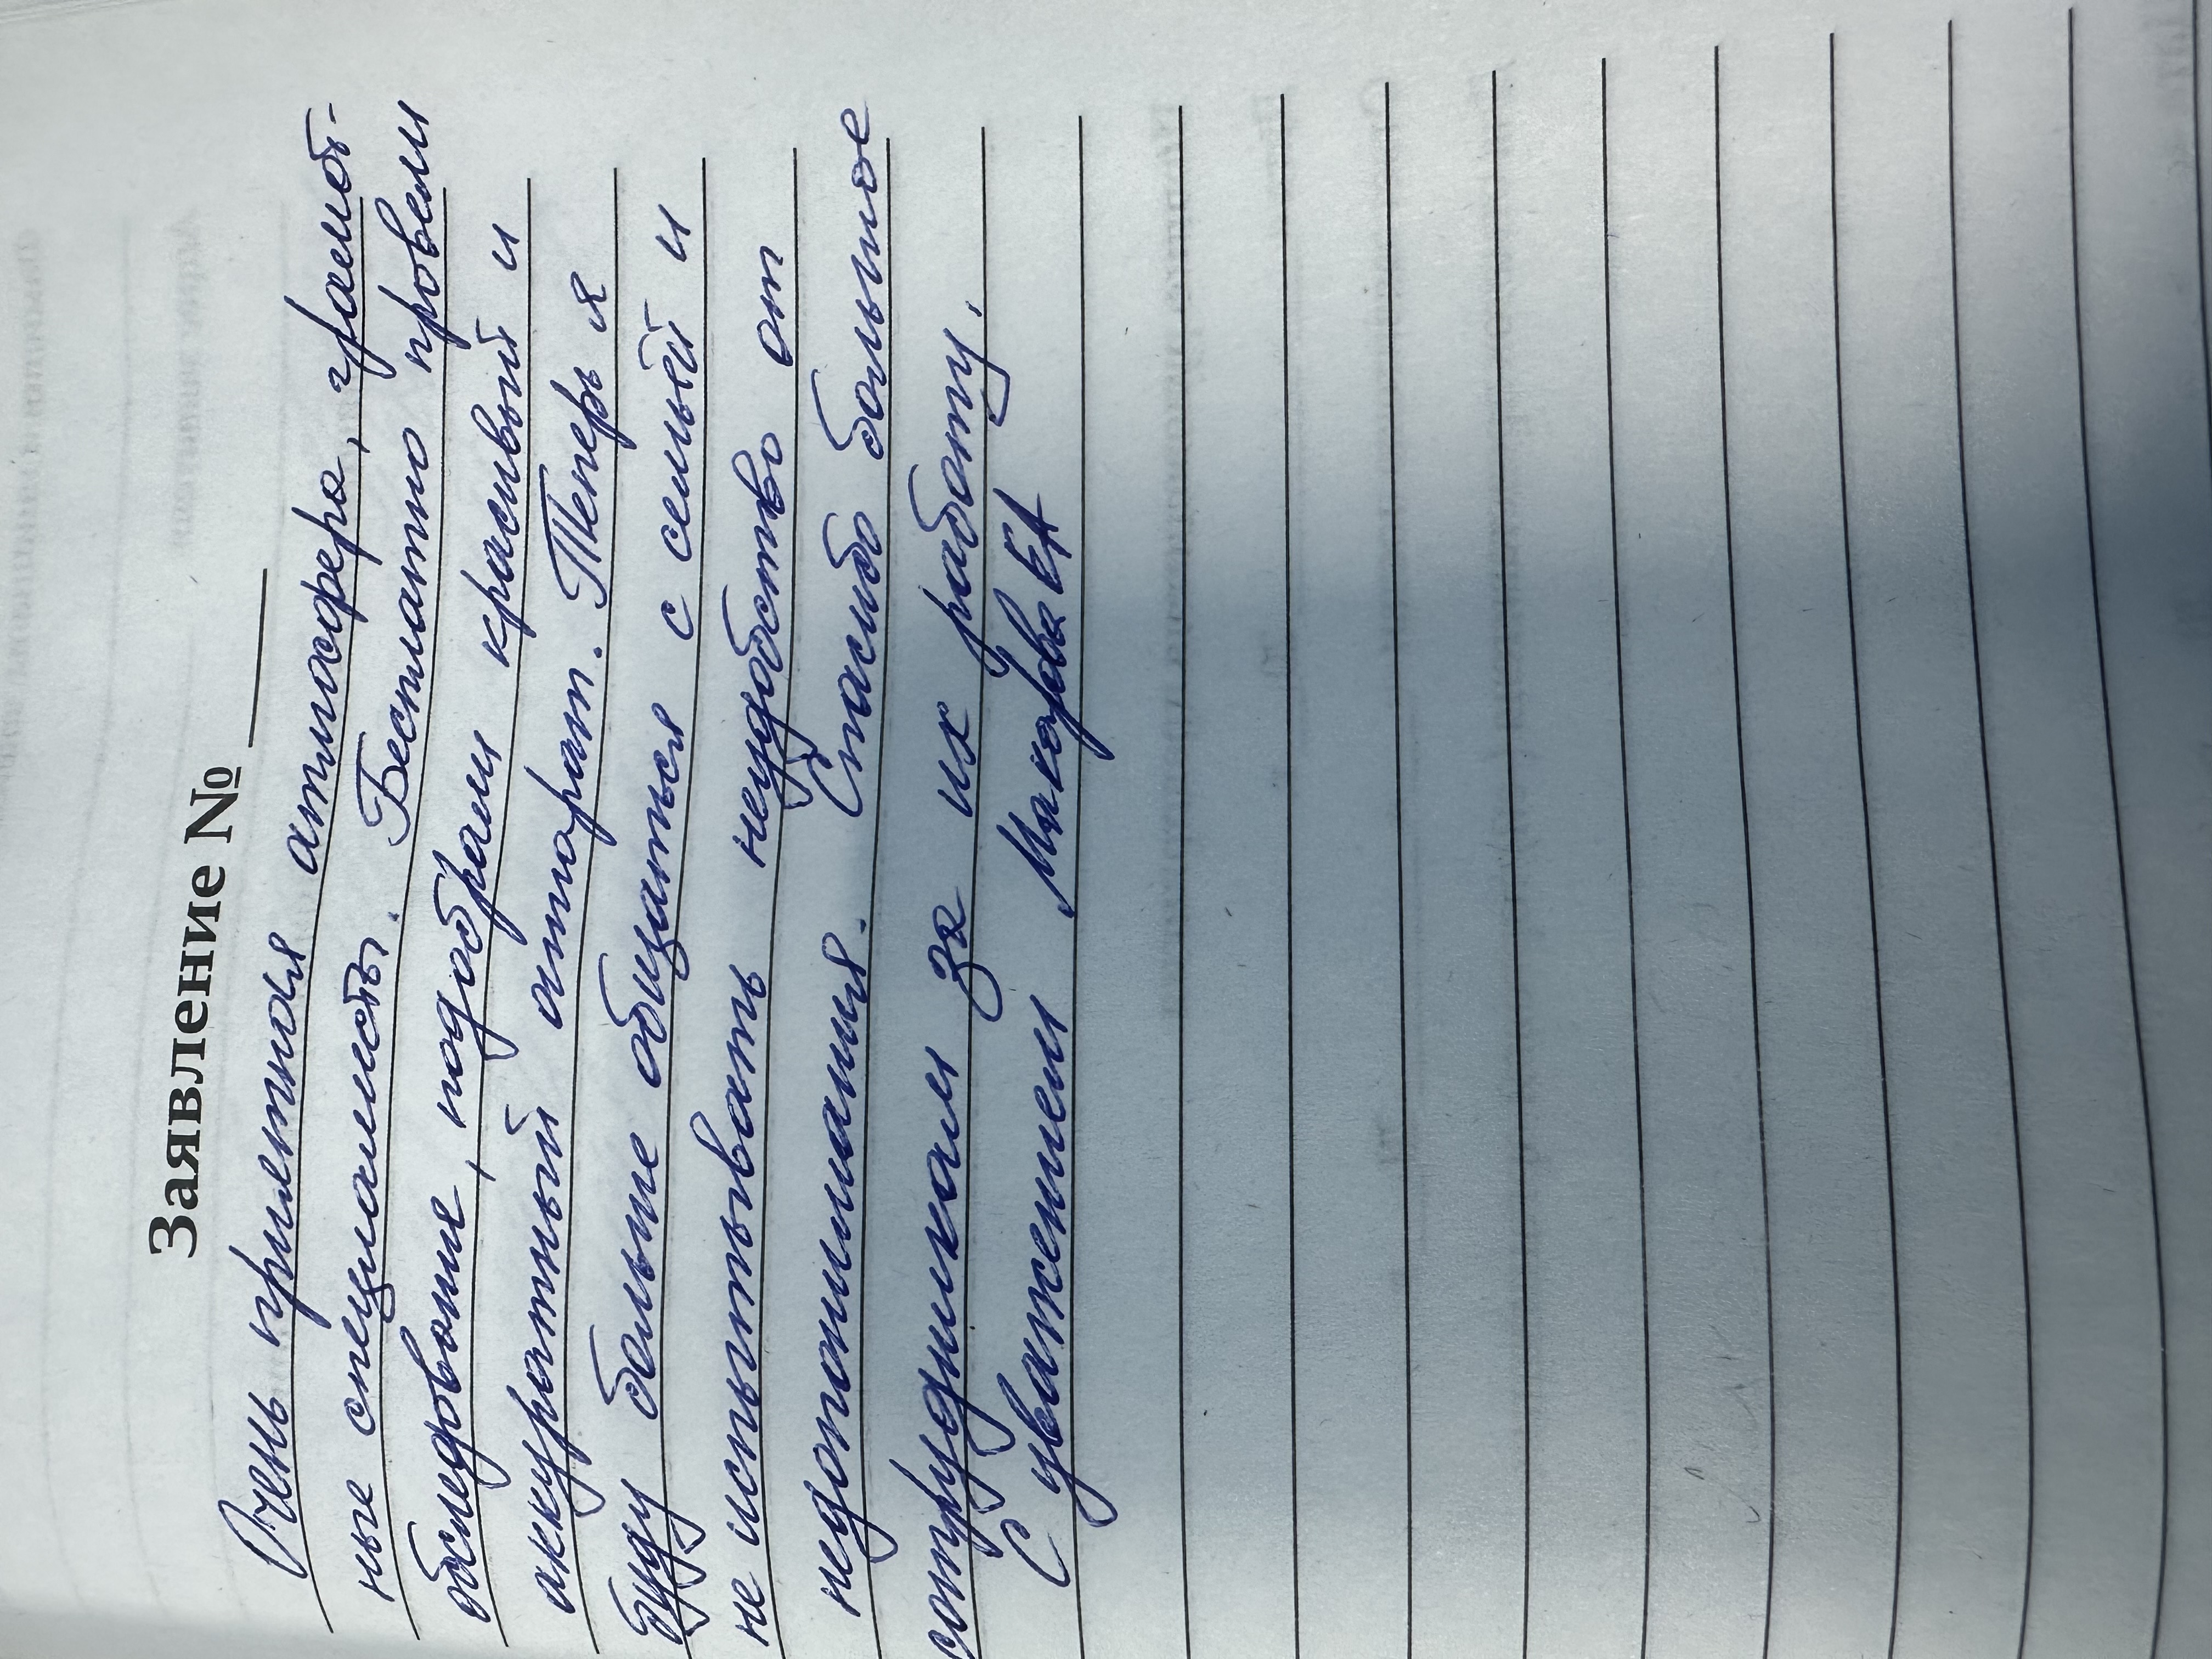 Заявление № ____
Очень приятная атмосфера, грамот-
ные специалисты. Бесплатно провели
обследование, подобрали красивый и
аккуратный аппарат. Теперь я
буду больше общаться с семьёй и
не испытывать неудобство от
недопонимания. Спасибо большое
сотрудникам за их работу.
С уважением Макарова ЕА